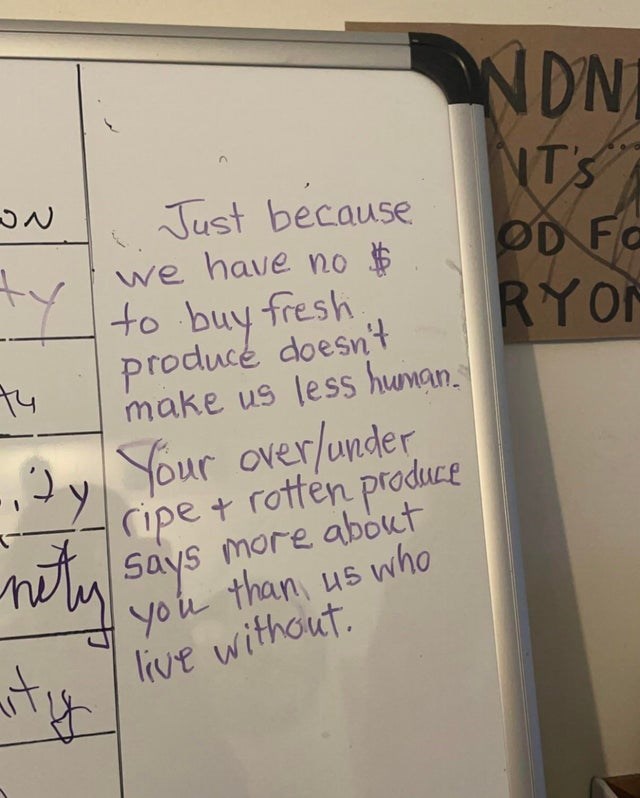 ON
ty
ty
ity
nety
ity
Just because
we have no $
to buy fresh
produce doesn't
make us less human.
Your over/under
ripe + rotten produce
says more about
you than us who
live without.
NDN
IT'S
OD FO
RYON